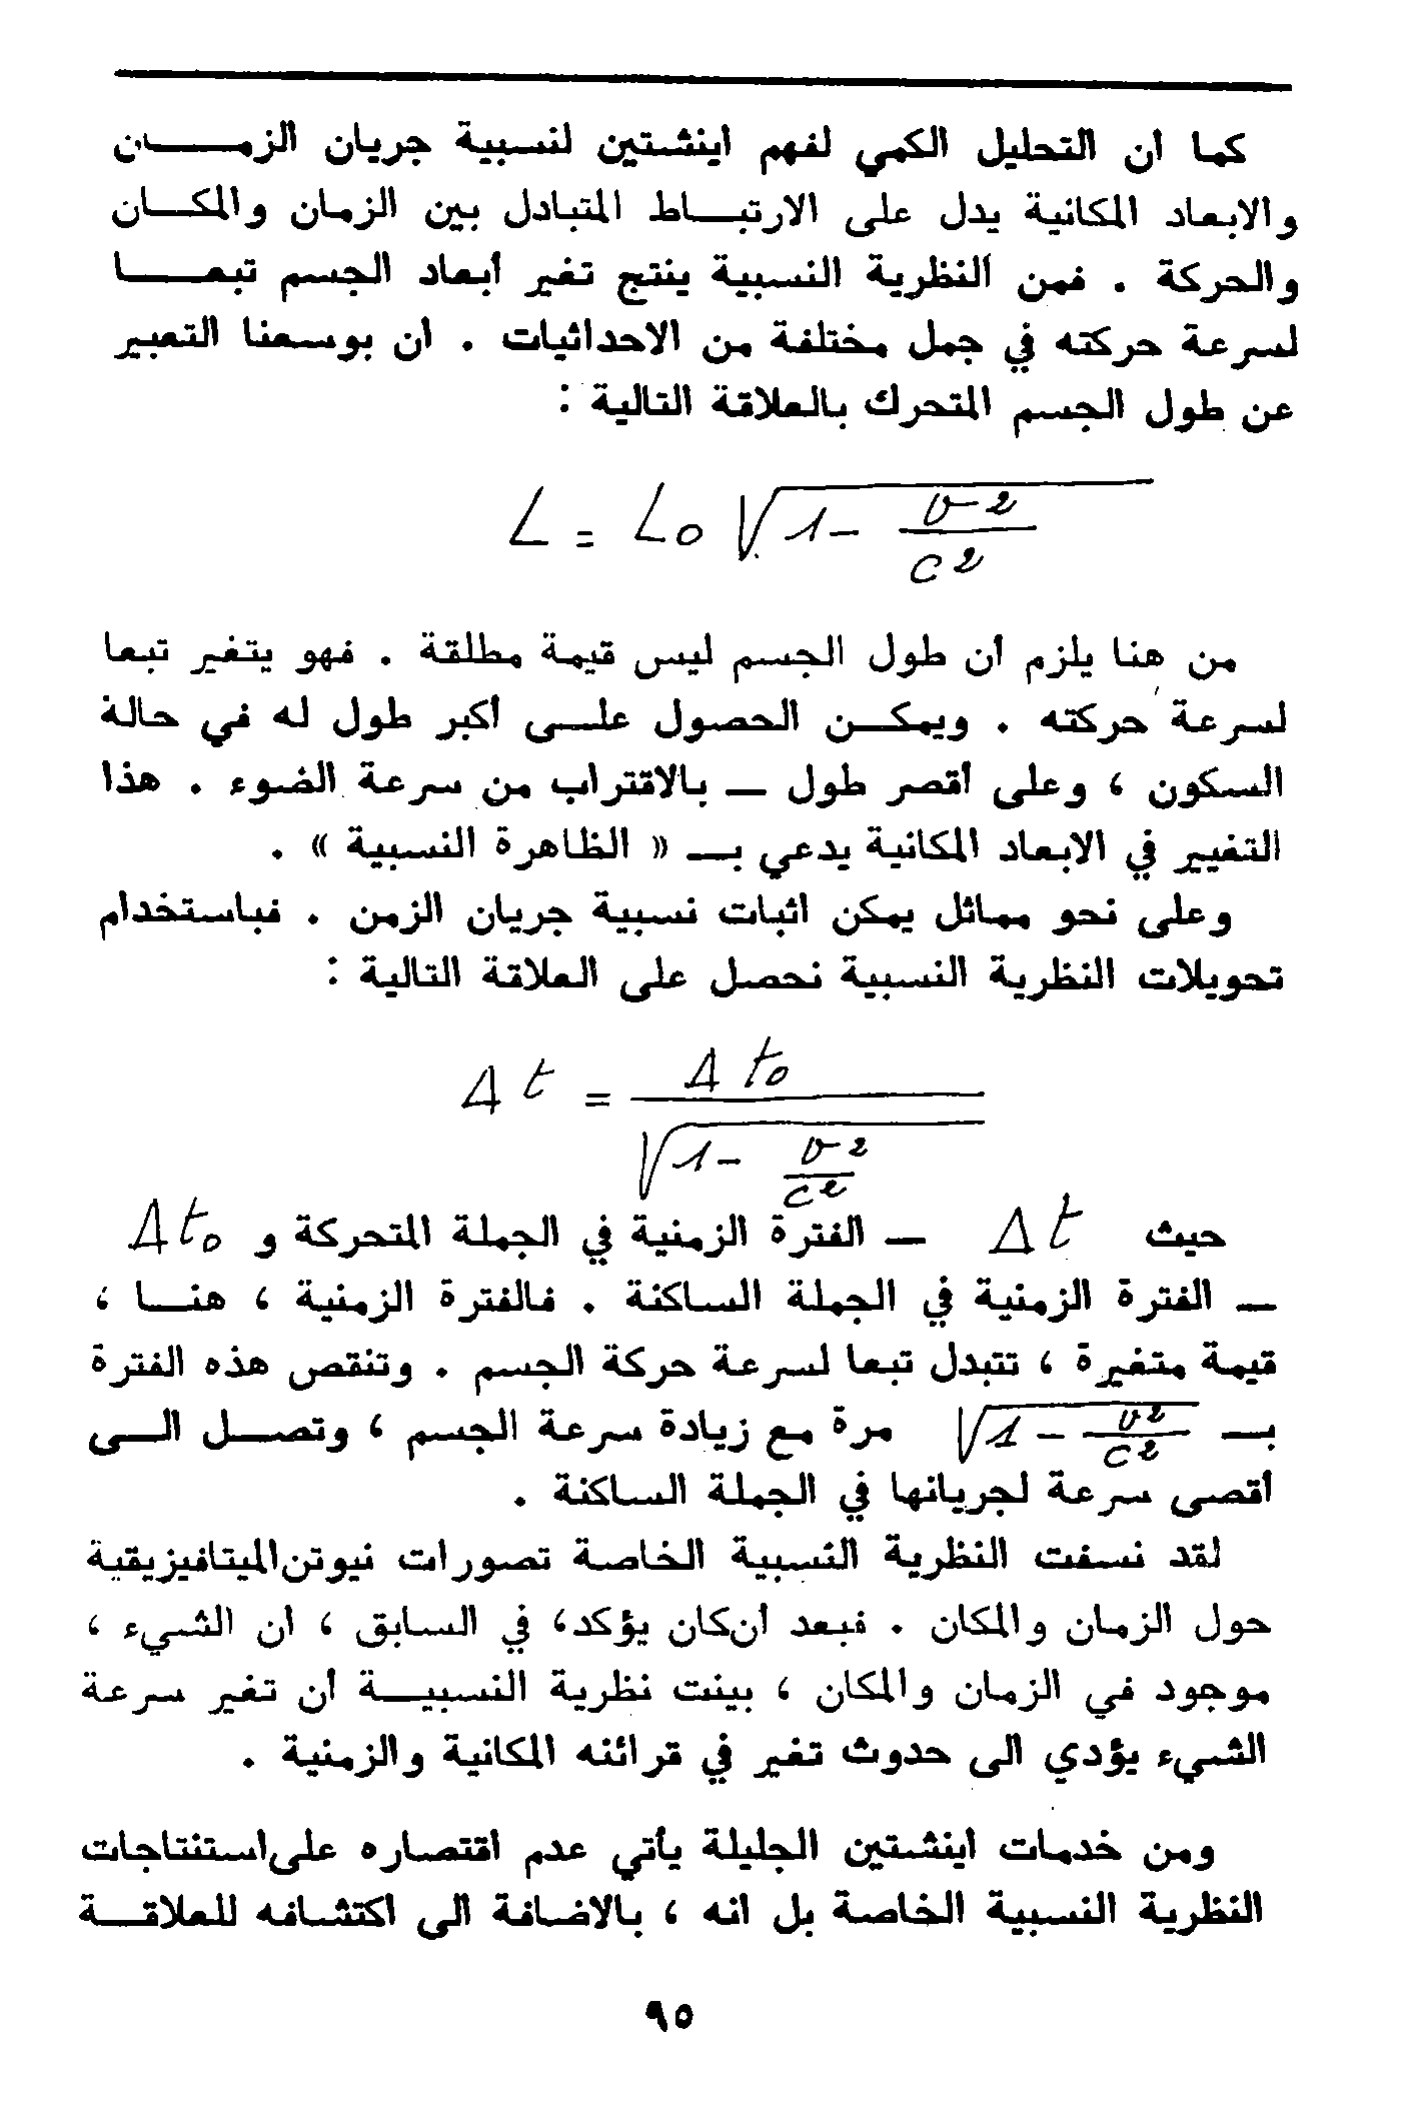 كما ان التحليل الكمي لفهم اينشتين لنسبية جريان الزمـــان
والابعاد المكانية يدل على الارتبـــاط المتبادل بين الزمان والمكـــان
والحركة . فمن ألنظرية النسبية ينتج تغير أبعاد الجسم تبعـــا
لسرعة حركته في جمل مختلفة من الاحداثيات . ان بوسعنا التعبير
عن طول الجسم المتحرك بالعلاقة التالية :
L = L₀ √(1 − v²/c²)
من هنا يلزم أن طول الجسم ليس قيمة مطلقة . فهو يتغير تبعا
لسرعة حركته . ويمكـــن الحصول علـــى أكبر طول له في حالة
السكون ، وعلى أقصر طول — بالاقتراب من سرعة الضوء . هذا
التغيير في الابعاد المكانية يدعي بــ « الظاهرة النسبية » .
وعلى نحو مماثل يمكن اثبات نسبية جريان الزمن . فباستخدام
تحويلات النظرية النسبية نحصل على العلاقة التالية :
Δt = Δt₀ / √(1 − v²/c²)
حيث Δt — الفترة الزمنية في الجملة المتحركة و Δt₀
— الفترة الزمنية في الجملة الساكنة . فالفترة الزمنية ، هنـــا ،
قيمة متغيرة ، تتبدل تبعا لسرعة حركة الجسم . وتنقص هذه الفترة
بــ √(1 − v²/c²) مرة مع زيادة سرعة الجسم ، وتصـــل الـــى
أقصى سرعة لجريانها في الجملة الساكنة .
لقد نسفت النظرية النسبية الخاصة تصورات نيوتن الميتافيزيقية
حول الزمان والمكان . فبعد أن كان يؤكد، في السابق ، ان الشيء ،
موجود في الزمان والمكان ، بينت نظرية النسبيـــة أن تغير سرعة
الشيء يؤدي الى حدوث تغير في قرائنه المكانية والزمنية .
ومن خدمات اينشتين الجليلة يأتي عدم اقتصاره على استنتاجات
النظرية النسبية الخاصة بل انه ، بالاضافة الى اكتشافه للعلاقـــة
٩٥